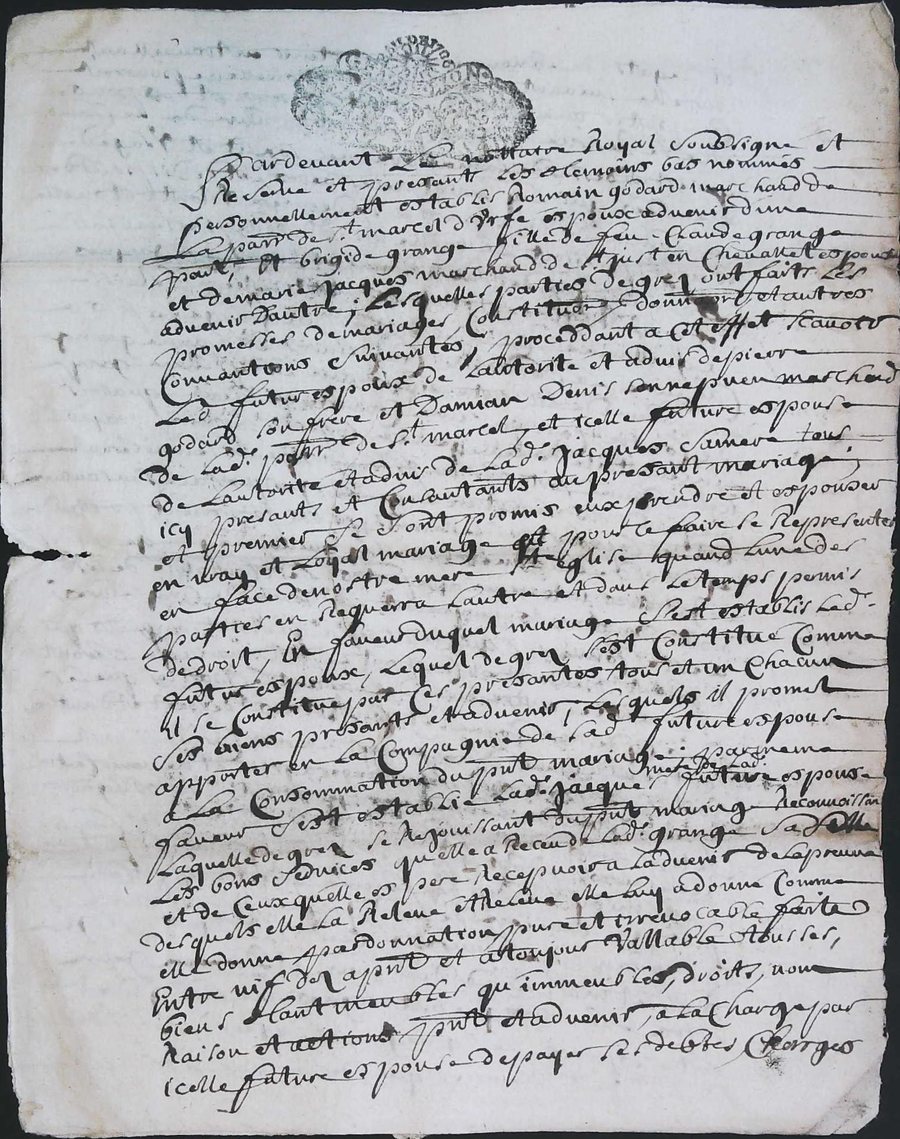 GÂ DE LYON
Pardevant Le nottaire Royal soubsigné et
Reservé et presants les temoins bas nommés
personnellement establis Romain godard marchand de
La parr de St marcel d'Urfe espoux advenir d'une
part, Et brigide grange fille de feu Claude grange
et de marie jacques marchand de St just en Chevallet espouse
advenir d'autre; Lesquelles parties de grez ont faits Les
promesses de mariages, Constituõn, donnaõn et autres
Convantions suivantes, proceddant a Cet effet scavoir
Led. futur espoux de l'autorite et advis de pierre
godard son frere et Damian Denis marchand
de lad. parr de St marcel, et icelle future espouse
de lautorite et advis de Lad. jacques sa mere tous
icy presants et Consantants au presant mariage;
et premier se sont promis eux prendre et espouser
en vray et Loyal mariage et pour le faire se Representer
en face de nostre mere Ste eglise quand lune des
parties en Requerra lautre et dans le temps permis
de droit, En faveur duquel mariage s'est establis led.
futur espoux, lequel de grez s'est Constitué Comme
il se Constitue par Ces presantes tous et un Chacun
ses biens presants et advenir, lesquels il promet
apporter en la Compagnie de lad. future espouse
a La Consommation du pnt mariage; par meme
faveur s'est establie lad. jacques mere de lad. future espouse
Laquelle de grez se Rejouissant du pnt mariage Reconnoissan
Les bons services qu'elle a Receu de lad. grange sa fille
et de Ceux quelle espere Recepvoir a ladvenir de la preuve
desquels elle la Relevé et Releve elle luy a donné Comme
elle donne par donnation pure et irrevocable faite
Entre vif dez a pnt et a toujours Vallable tous ses,
biens tant meubles qu'immeubles, droits, nom
Raison et actions pnt et advenir, a la Charge par
icelle future espouse de payer ses debtes, Charges